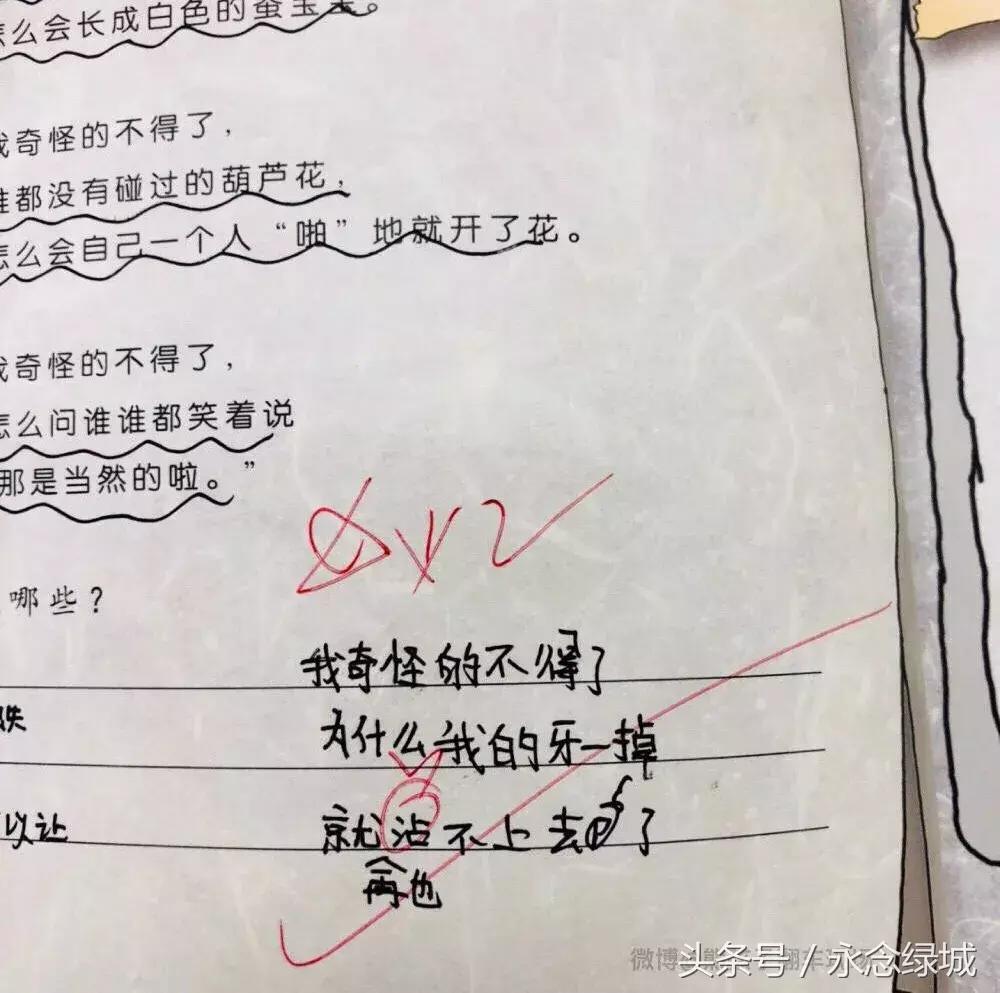 怎么会长成白色的蚕宝宝。
我奇怪的不得了，
谁都没有碰过的葫芦花，
怎么会自己一个人“啪”地就开了花。
我奇怪的不得了，
怎么问谁谁都笑着说
那是当然的啦。”
哪些？
我奇怪的不得了
为什么我的牙一掉
就沾不上去了
再也
以让
头条号 / 永念绿城